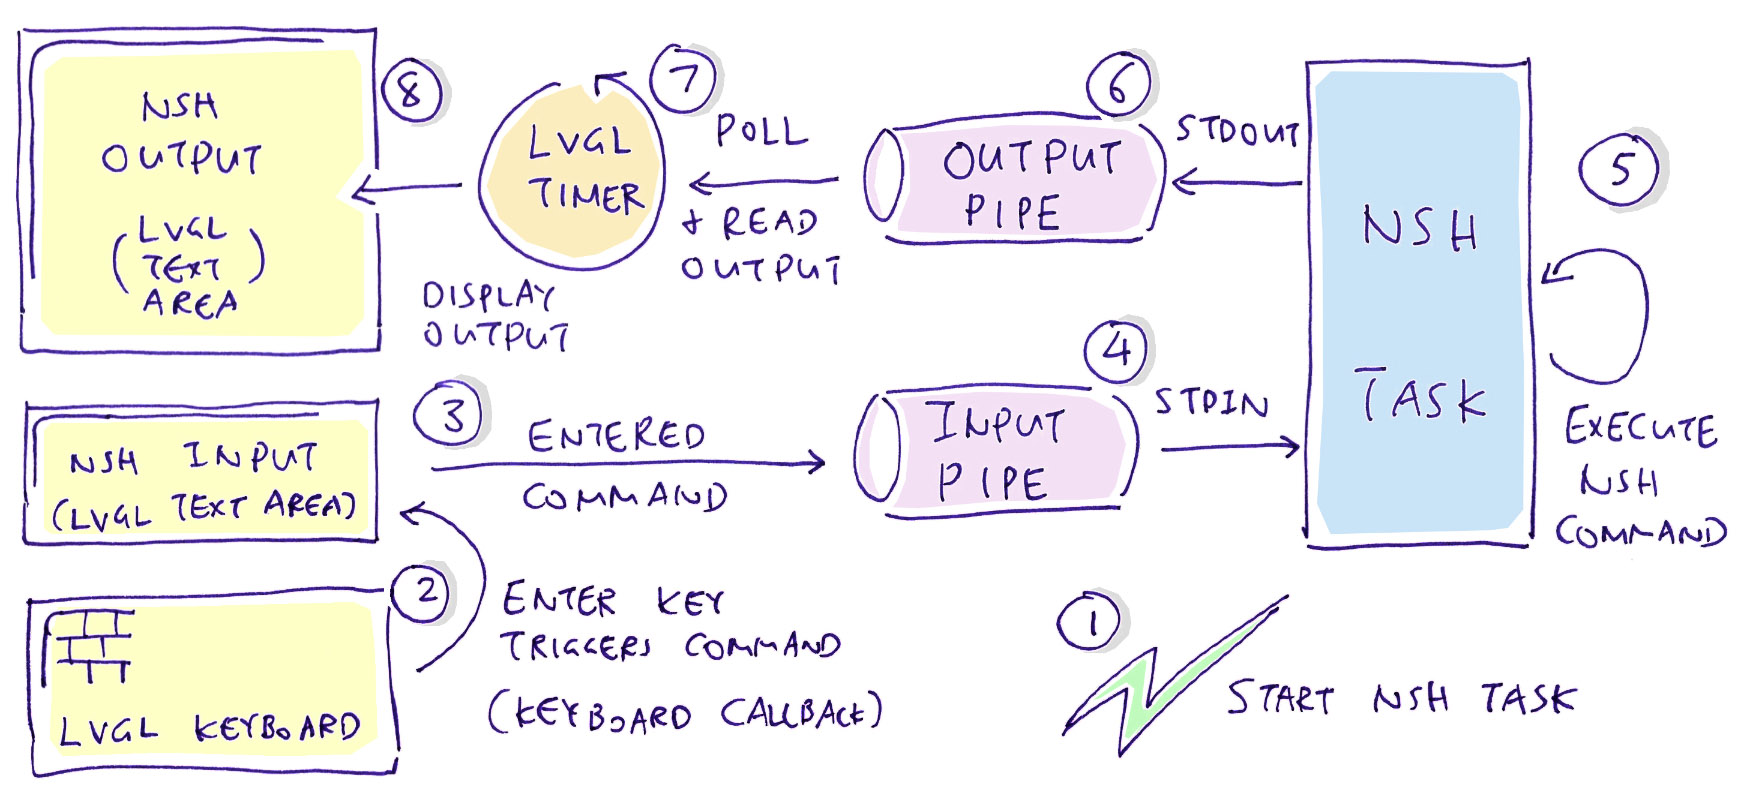 NSH
OUTPUT
(LVGL
TEXT
AREA)
8
DISPLAY
OUTPUT
LVGL
TIMER
7
POLL
+ READ
OUTPUT
6
OUTPUT
PIPE
STDOUT
NSH
TASK
5
EXECUTE
NSH
COMMAND
NSH INPUT
(LVGL TEXT AREA)
3
ENTERED
COMMAND
4
INPUT
PIPE
STDIN
LVGL KEYBOARD
2
ENTER KEY
TRIGGERS COMMAND
(KEYBOARD CALLBACK)
1
START NSH TASK